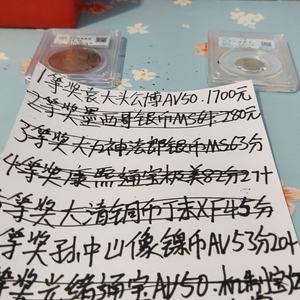 1等奖袁大头公博AV50.1700元
2等奖墨西哥银币MS64.280元
3等奖大方神法郎银币MS63分
4等奖康熙通宝极美82分2寸
等奖大清铜币 XF45分
等奖孙中山像镍币AV53分20寸
等奖光绪通宝AV50.机制宝